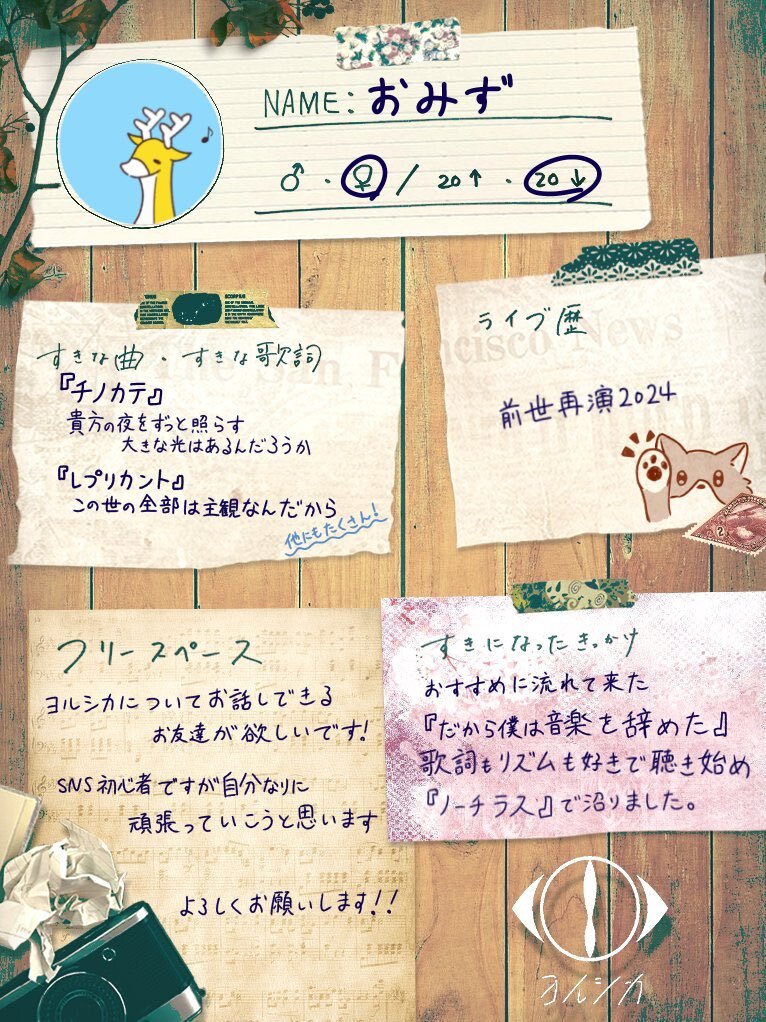 NAME: おみず
♂ ・ ♀ / 20↑ ・ 20↓
すきな曲・すきな歌詞
『チノカテ』
貴方の夜をずっと照らす
大きな光はあるんだろうか
『レプリカント』
この世の全部は主観なんだから
他にもたくさん!
ライブ歴
前世再演2024
フリースペース
ヨルシカについてお話しできる
お友達が欲しいです!
SNS初心者ですが自分なりに
頑張っていこうと思います
よろしくお願いします!!
すきになったきっかけ
おすすめに流れて来た
『だから僕は音楽を辞めた』
歌詞もリズムも好きで聴き始め
『ノーチラス』で沼りました。
ヨルシカ